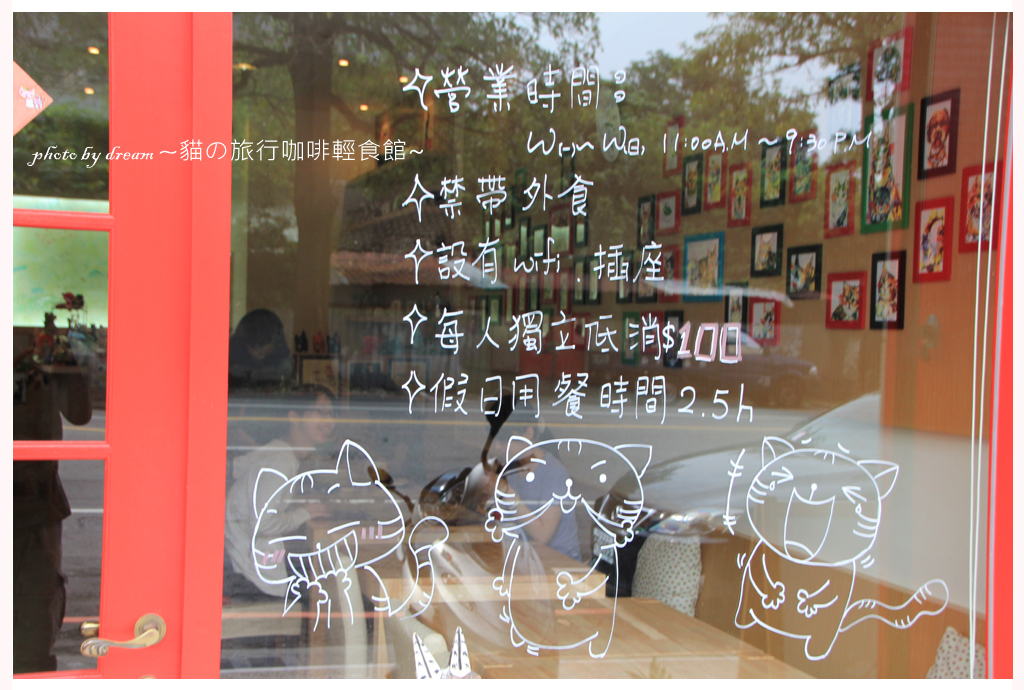 營業時間:
W(一)~W(日), 11:00A.M ~ 9:30 P.M
photo by dream ~貓の旅行咖啡輕食館~
禁帶外食
設有wifi.插座
每人獨立低消$100
假日用餐時間2.5h